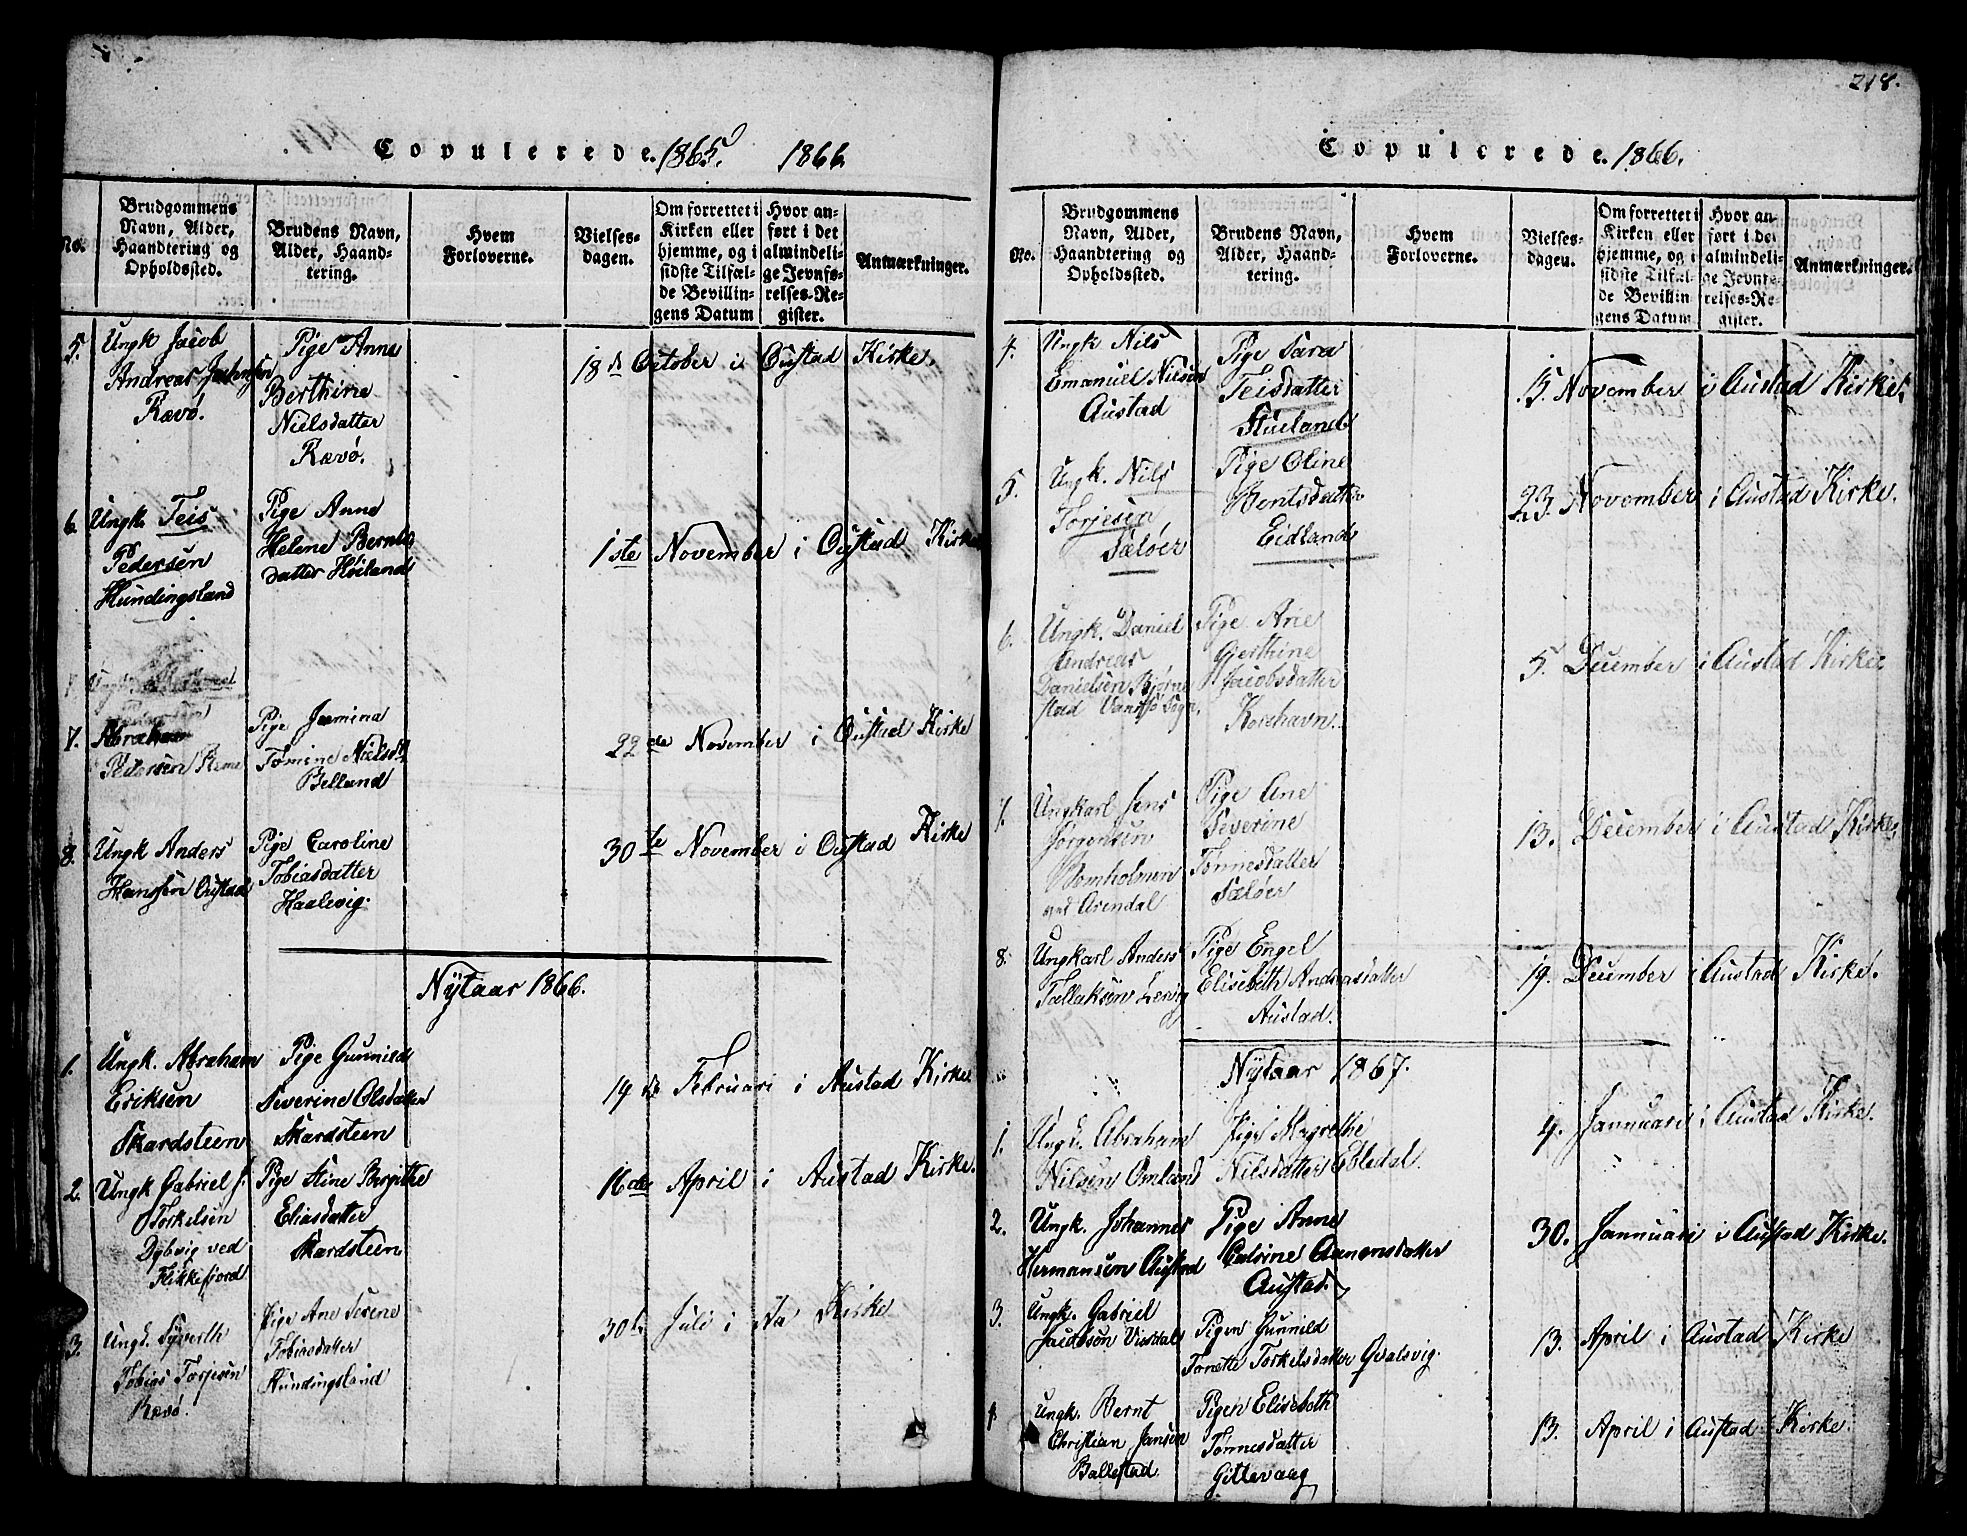 218.
Copulerede. 1865. 1866.
No.
Brudgommens Navn, Alder, Haandtering og Opholdssted.
Brudens Navn, Alder, Haandtering.
Hvem Forloverne.
Vielsesdagen.
Om forrettet i Kirken eller hjemme, og i sidste Tilfælde Bevillingens Datum
Hvor anført i det almindelige Jevnførelses-Register.
Anmærkninger.
5. Ungk Jacob
Andreas
Rævø.
Pige Anna
Berthine
Nielsdatter
Rævø.
18d October i Oustad Kirke.
6. Ungk. Teis
Pedersen
Hundingsland
Pige Anne
Helene
datter Høiland
1ste November i Oustad Kirke
7. Abraham
Pedersen
Pige Jemina
Tomine Nielsd.
Belland
22de November i Oustad Kirke
8. Ungk Anders
Hanssen Oustad
Pige Caroline
Tobiasdatter
Haalevig.
30te November i Oustad Kirke
Nytaar 1866.
1. Ungk. Abraham
Eriksen
Skardsteen
Pige Gunnild
Severine Olsdatter
Skardsteen
19de Februari i Austad Kirke.
2. Ungk Gabriel J.
Torkelsen
Dybvig ved
Flikkefjord
Pige Stine Birgithe
Eliasdatter
Skardsteen
16de April i Austad Kirke.
3. Ungk. Syverth
Tobias Torjesen
Rævø.
Pige Ane Serene
Tobiasdatter
Hundingsland
30te Juli i Kirke
Copulerede. 1866.
No.
Brudgommens Navn, Alder, Haandtering og Opholdssted.
Brudens Navn, Alder, Haandtering.
Hvem Forloverne.
Vielsesdagen.
Om forrettet i Kirken eller hjemme, og i sidste Tilfælde Bevillingens Datum
Hvor anført i det almindelige Jevnførelses-Register.
Anmærkninger.
4. Ungk Nils
Emanuel Nilsen
Austad
Pige Sara
Teisdatter
Stueland
15. November i Austad Kirke.
5. Ungk. Nils
Torjesen
Sæløer
Pige Oline
Eidland
23. November i Austad Kirke.
6. Ungk. Daniel
Andreas
Danielsen Bjørne
stad Vansø Sogn.
Pige Ane
Gerthine
Jacobsdatter
Korshavn.
5. December i Austad Kirke
7. Ungkarl Jens
Jørgensen
ved Arendal
Pige Ane
Severine
Tønnesdatter
Sæløer
13. December i Austad Kirke.
8. Ungkarl Anders
Tallaksen Lervig
Pige Engel
Elisebeth Andreasdatter
Austad.
19. December i Austad Kirke.
Nytaar 1867.
1. Ungk. Abraham
Nilsen Omland
Pige Magrethe
Nilsdatter Ebledal.
4. Jannuari i Austad Kirke.
2. Ungk. Johannes
Hermansen Austad
Pige Anne
Catrine Aanonsdatter
Austad.
30. Jannuari i Austad Kirke.
3. Ungk. Gabriel
Jacobsen Visdal
Pigen Gunnild
Tonette Torkelsdatter Qvalsvig.
13. April i Austad Kirke
Ungk. Bernt
Christian Jansen
Ballestad
Pigen Elisebeth
Tønnesdatter
Gittevaag
13. April i Austad Kirke.